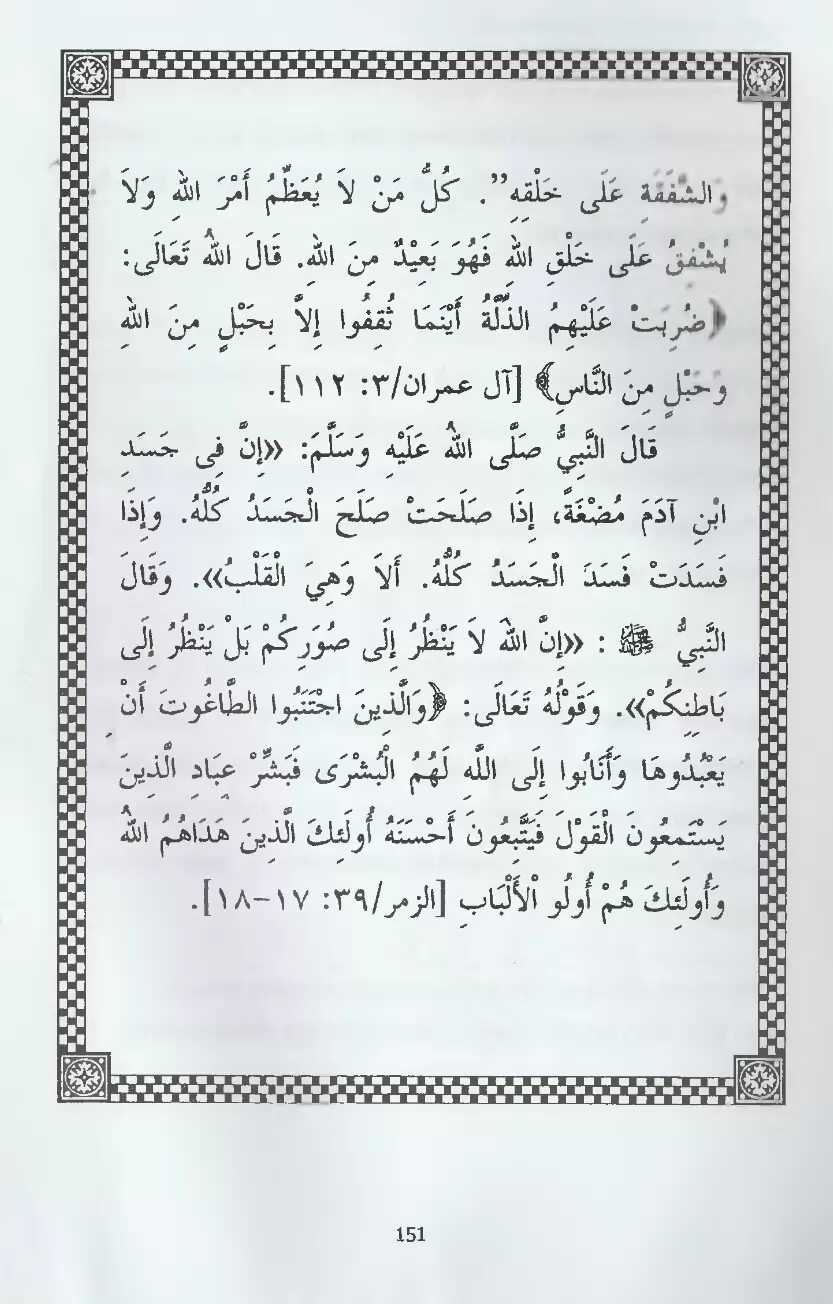 وَالشَّفَقَةِ عَلَى خَلْقِهِ”. كُلُّ مَنْ لاَ يُعَظِّمُ أَمْرَ اللهِ وَلاَ
يُشْفِقُ عَلَى خَلْقِ اللهِ فَهُوَ بَعِيْدٌ مِنَ اللهِ. قَالَ اللهُ تَعَالَى:
﴿ضُرِبَتْ عَلَيْهِمُ الذِّلَّةُ أَيْنَمَا ثُقِفُوا إِلاَّ بِحَبْلٍ مِنَ اللهِ
وَحَبْلٍ مِنَ النَّاسِ﴾ [آل عمران/٣: ١١٢].
قَالَ النَّبِيُّ صَلَّى اللهُ عَلَيْهِ وَسَلَّمَ: «إِنَّ فِى جَسَدِ
ابْنِ آدَمَ مُضْغَةً، إِذَا صَلَحَتْ صَلَحَ الْجَسَدُ كُلُّهُ. وَإِذَا
فَسَدَتْ فَسَدَ الْجَسَدُ كُلُّهُ. أَلاَ وَهِيَ الْقَلْبُ». وَقَالَ
النَّبِيُّ ﷺ : «إِنَّ اللهَ لاَ يَنْظُرُ إِلَى صُوَرِكُمْ بَلْ يَنْظُرُ إِلَى
بَاطِنِكُمْ». وَقَوْلُهُ تَعَالَى: ﴿وَالَّذِينَ اجْتَنَبُوا الطَّاغُوتَ أَنْ
يَعْبُدُوهَا وَأَنَابُوا إِلَى اللَّهِ لَهُمُ الْبُشْرَى فَبَشِّرْ عِبَادِ الَّذِينَ
يَسْتَمِعُونَ الْقَوْلَ فَيَتَّبِعُونَ أَحْسَنَهُ أُولَئِكَ الَّذِينَ هَدَاهُمُ اللهُ
وَأُولَئِكَ هُمْ أُولُو اْلأَلْبَابِ [الزمر/٣٩: ١٧-١٨].
151